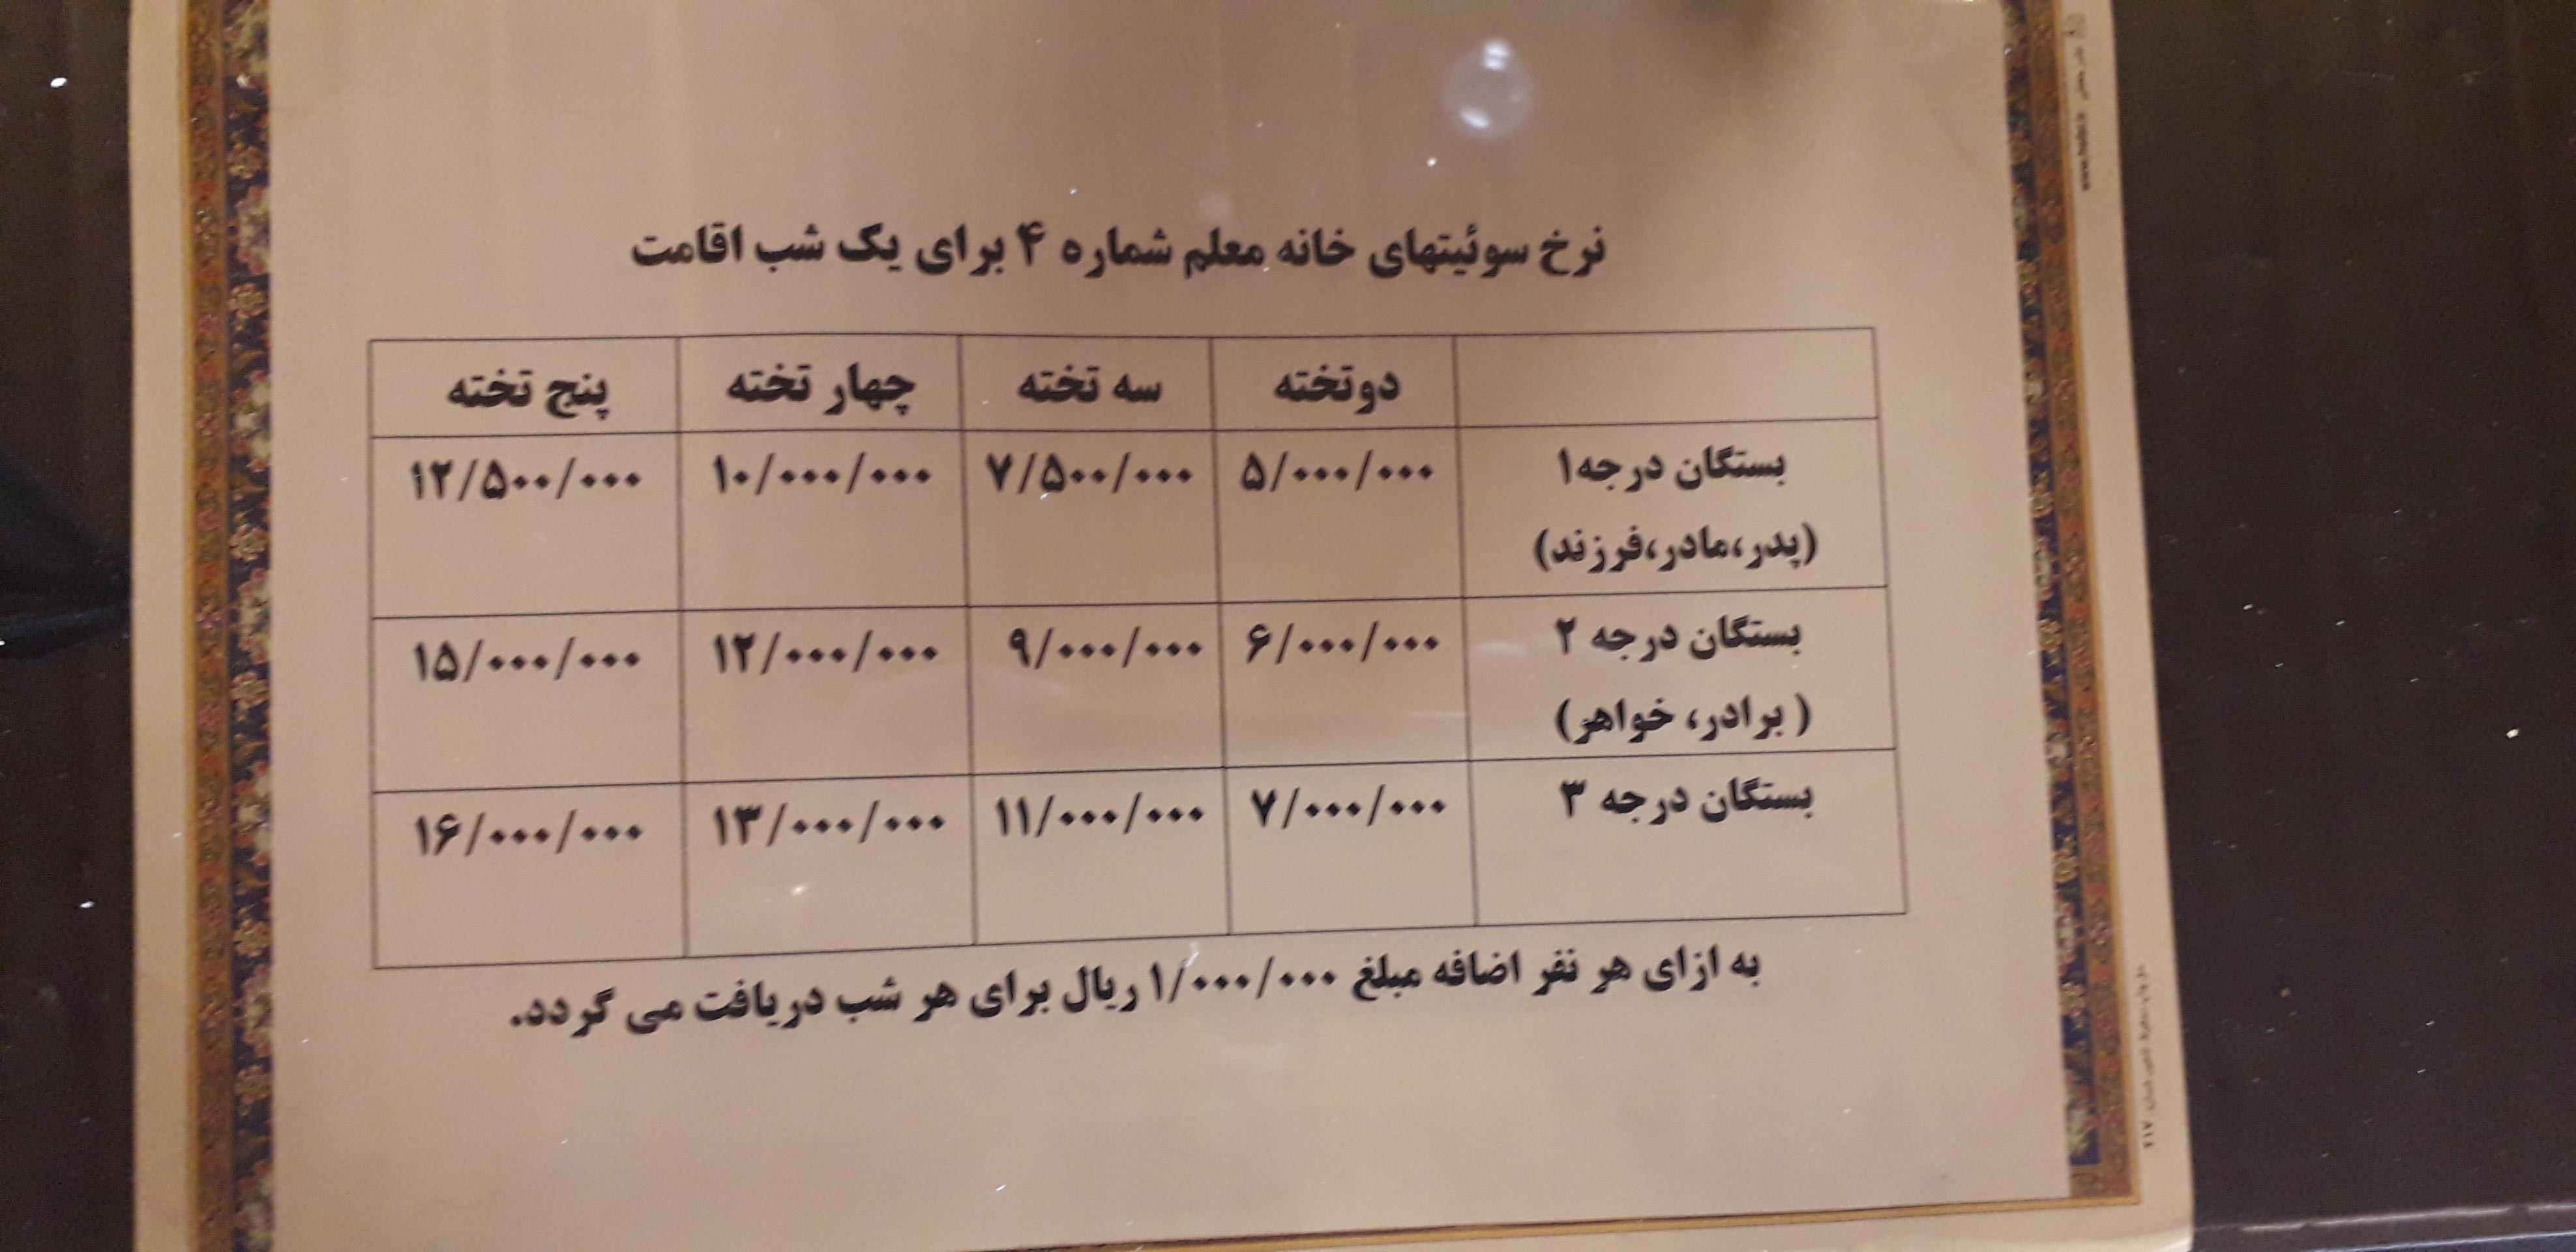 نرخ سوئیتهای خانه معلم شماره ۴ برای یک شب اقامت
دوتخته سه تخته چهار تخته پنج تخته
بستگان درجه۱ ۵/۰۰۰/۰۰۰ ۷/۵۰۰/۰۰۰ ۱۰/۰۰۰/۰۰۰ ۱۲/۵۰۰/۰۰۰
(پدر،مادر،فرزند)
بستگان درجه ۲ ۶/۰۰۰/۰۰۰ ۹/۰۰۰/۰۰۰ ۱۲/۰۰۰/۰۰۰ ۱۵/۰۰۰/۰۰۰
( برادر، خواهر)
بستگان درجه ۳ ۷/۰۰۰/۰۰۰ ۱۱/۰۰۰/۰۰۰ ۱۳/۰۰۰/۰۰۰ ۱۶/۰۰۰/۰۰۰
به ازای هر نفر اضافه مبلغ ۱/۰۰۰/۰۰۰ ریال برای هر شب دریافت می گردد.